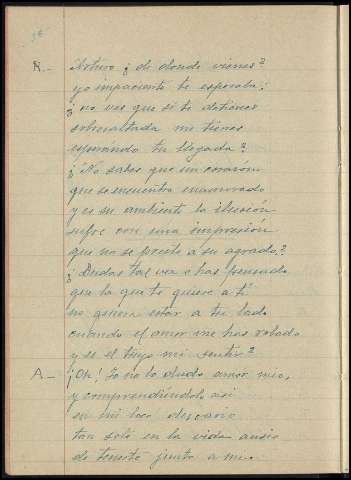 38
R.- Arturo ¿de donde vienes?
yo impaciente te esperaba!
¿no ves que si te detienes
sobresaltada me tienes
esperando tu llegada?
¿No sabes que un corazón
que se encuentra enamorado
y es su ambiente la ilusión
sufre con una impresión
que no se preste a su agrado?
¿Dudas tal vez o has pensado
que la que te quiere a tí
no quiera estar a tu lado
cuando el amor me has robado
y es el tuyo mi sentir?
A- ¡Oh! Yo no lo dudo amor mio,
y comprendiéndolo asi
en mi loco desvario
tan solo en la vida ansio
de tenerte junto a mi.